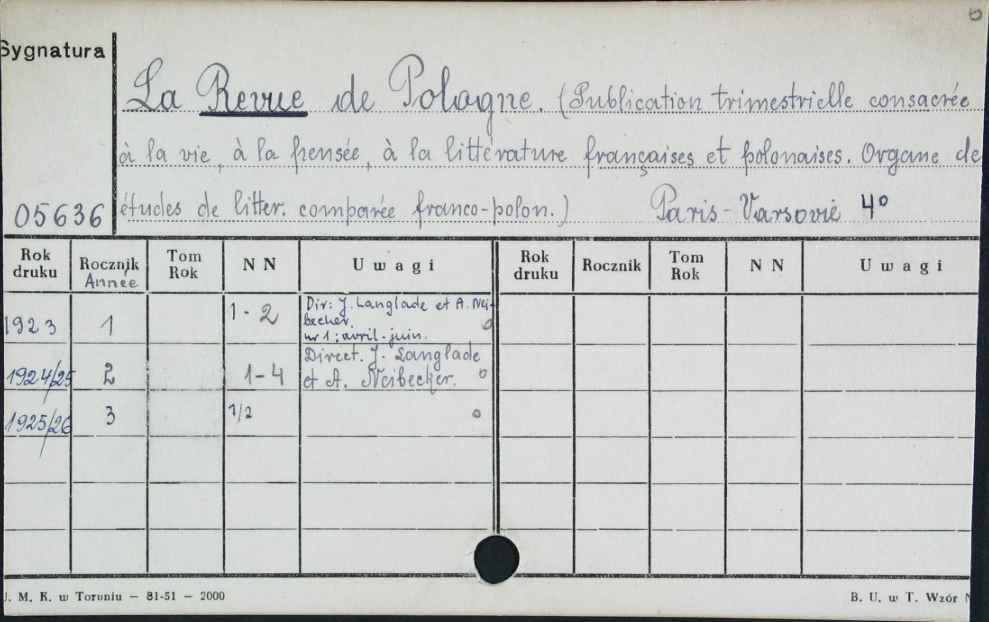 6
Sygnatura
La Revue de Pologne. (Publication trimestrielle consacrée
à la vie, à la pensée, à la littérature françaises et polonaises. Organe de
05636 études de litter. comparée franco-polon.) Paris-Varsovie 4º
Rok druku Rocznik Année Tom Rok N N Uwagi Rok druku Rocznik Tom Rok N N Uwagi
1923 1 1-2 Dir: J. Langlade et A. Nei-
becher.
nr 1: avril-juin. o
1924/25 2 1-4 Direct. J. Langlade
et A. Neibecker. o
1925/26 3 1/2 o
J. M. K. w Toruniu — 81-51 — 2000 B. U. w T. Wzór